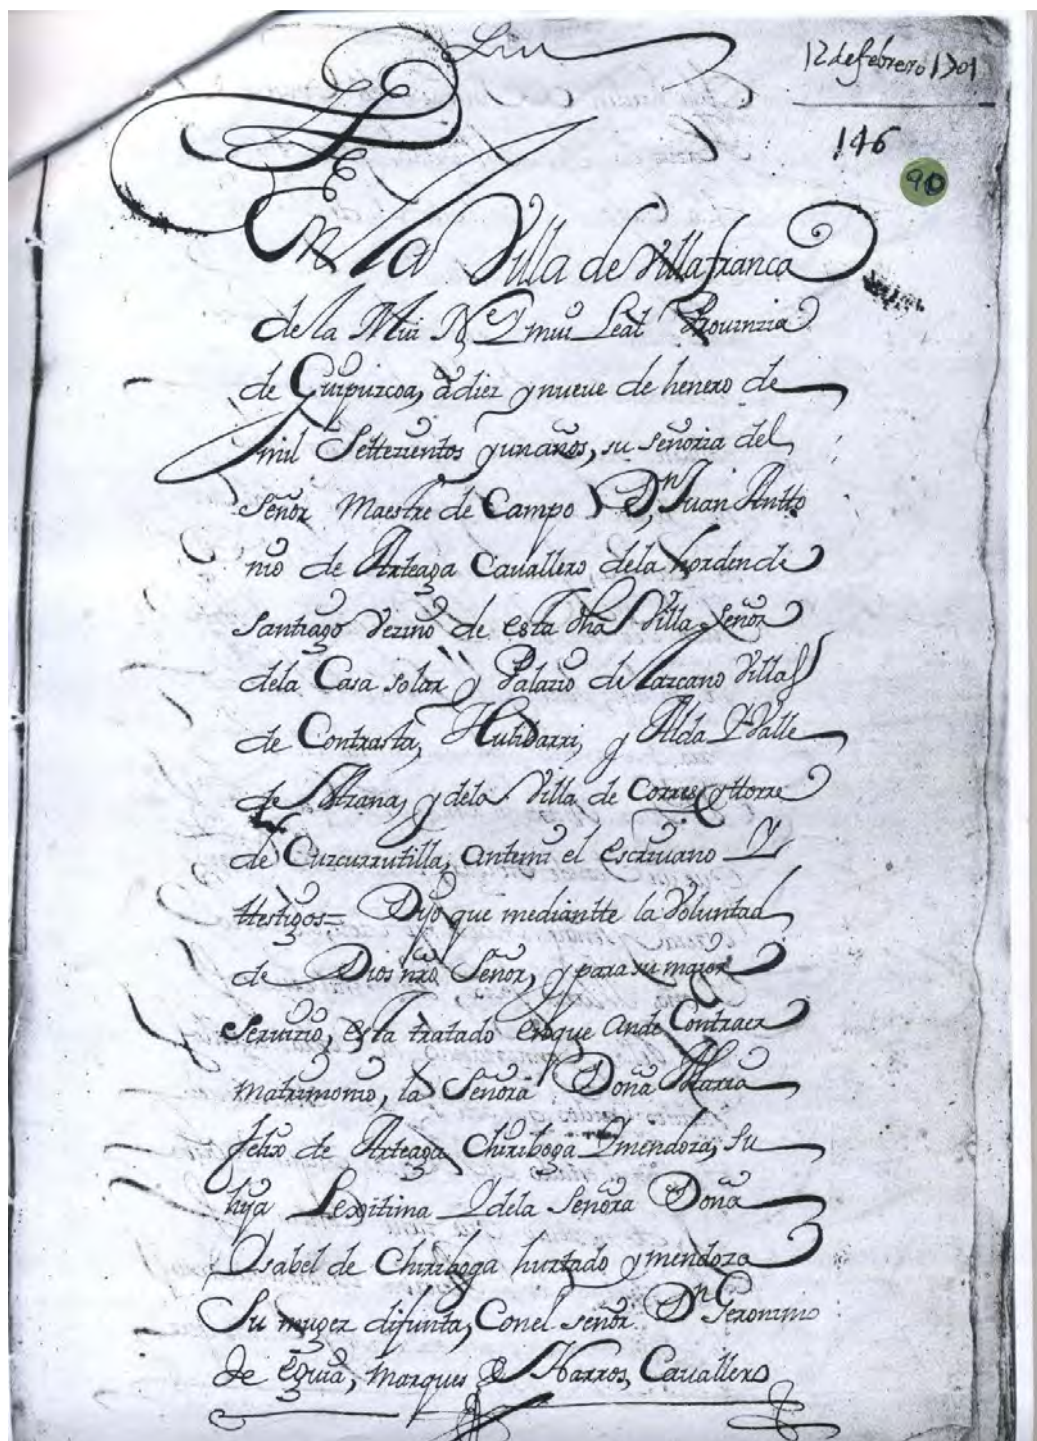 12 de febrero 1701
146
90
En la Villa de Villafranca
de la Mui N.e Y mui Leal Prouinzia
de Guipuzcoa, a diez y nueue de henero de
mil Settezientos y un años, su señoria del
Señor Maestre de Campo Dn Juan Antto
nio de Arteaga Cauallero dela horden de
Santiago Vezino de esta dha Villa y Señor
dela Casa solar y Palazio de Lazcano Villas
de Contrasta, Hulibarri, y Alda Y Valle
de Arana, y dela Villa de Corres, y ttorre
de Cuzcurrutilla, antemi el escriuano Y
ttestigos= Dijo que mediantte la Voluntad
de Dios nro Señor, y para su maior
Seruizio, esta tratado enque ande Contraer
matrimonio, la Señora Doña Maria
felix de Arteaga Chiriboga Y mendoza, su
hija Lexitima Y dela Señora Doña
Ysabel de Chiriboga hurtado y mendoza
Su muger difunta, Conel señor Dn Geronimo
de eguia, marques de Narros, Cauallero